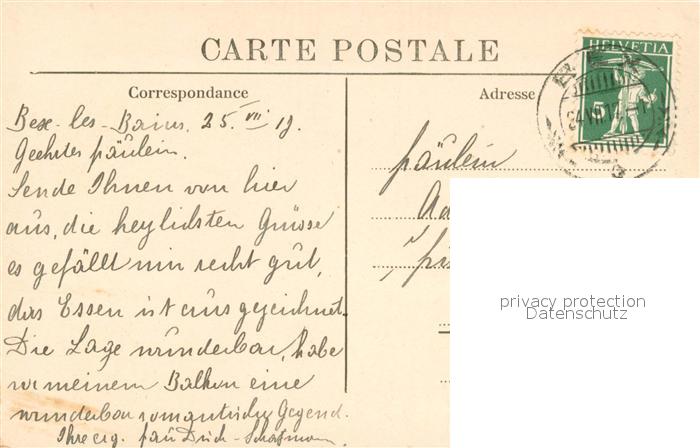 CARTE POSTALE
Correspondance
Adresse
HELVETIA
5
Bex-les-Bains. 25. VII
Geehrtes Fräulein.
Sende Ihnen von hier
aus, die herzlichsten Grüsse
es gefällt mir recht gut,
das Essen ist ausgezeichnet.
Die Lage wunderbar, habe
vor meinem Balkon eine
wunderbar romantische Gegend.
Ihre erg. Frau
Fräulein
privacy protection
Datenschutz